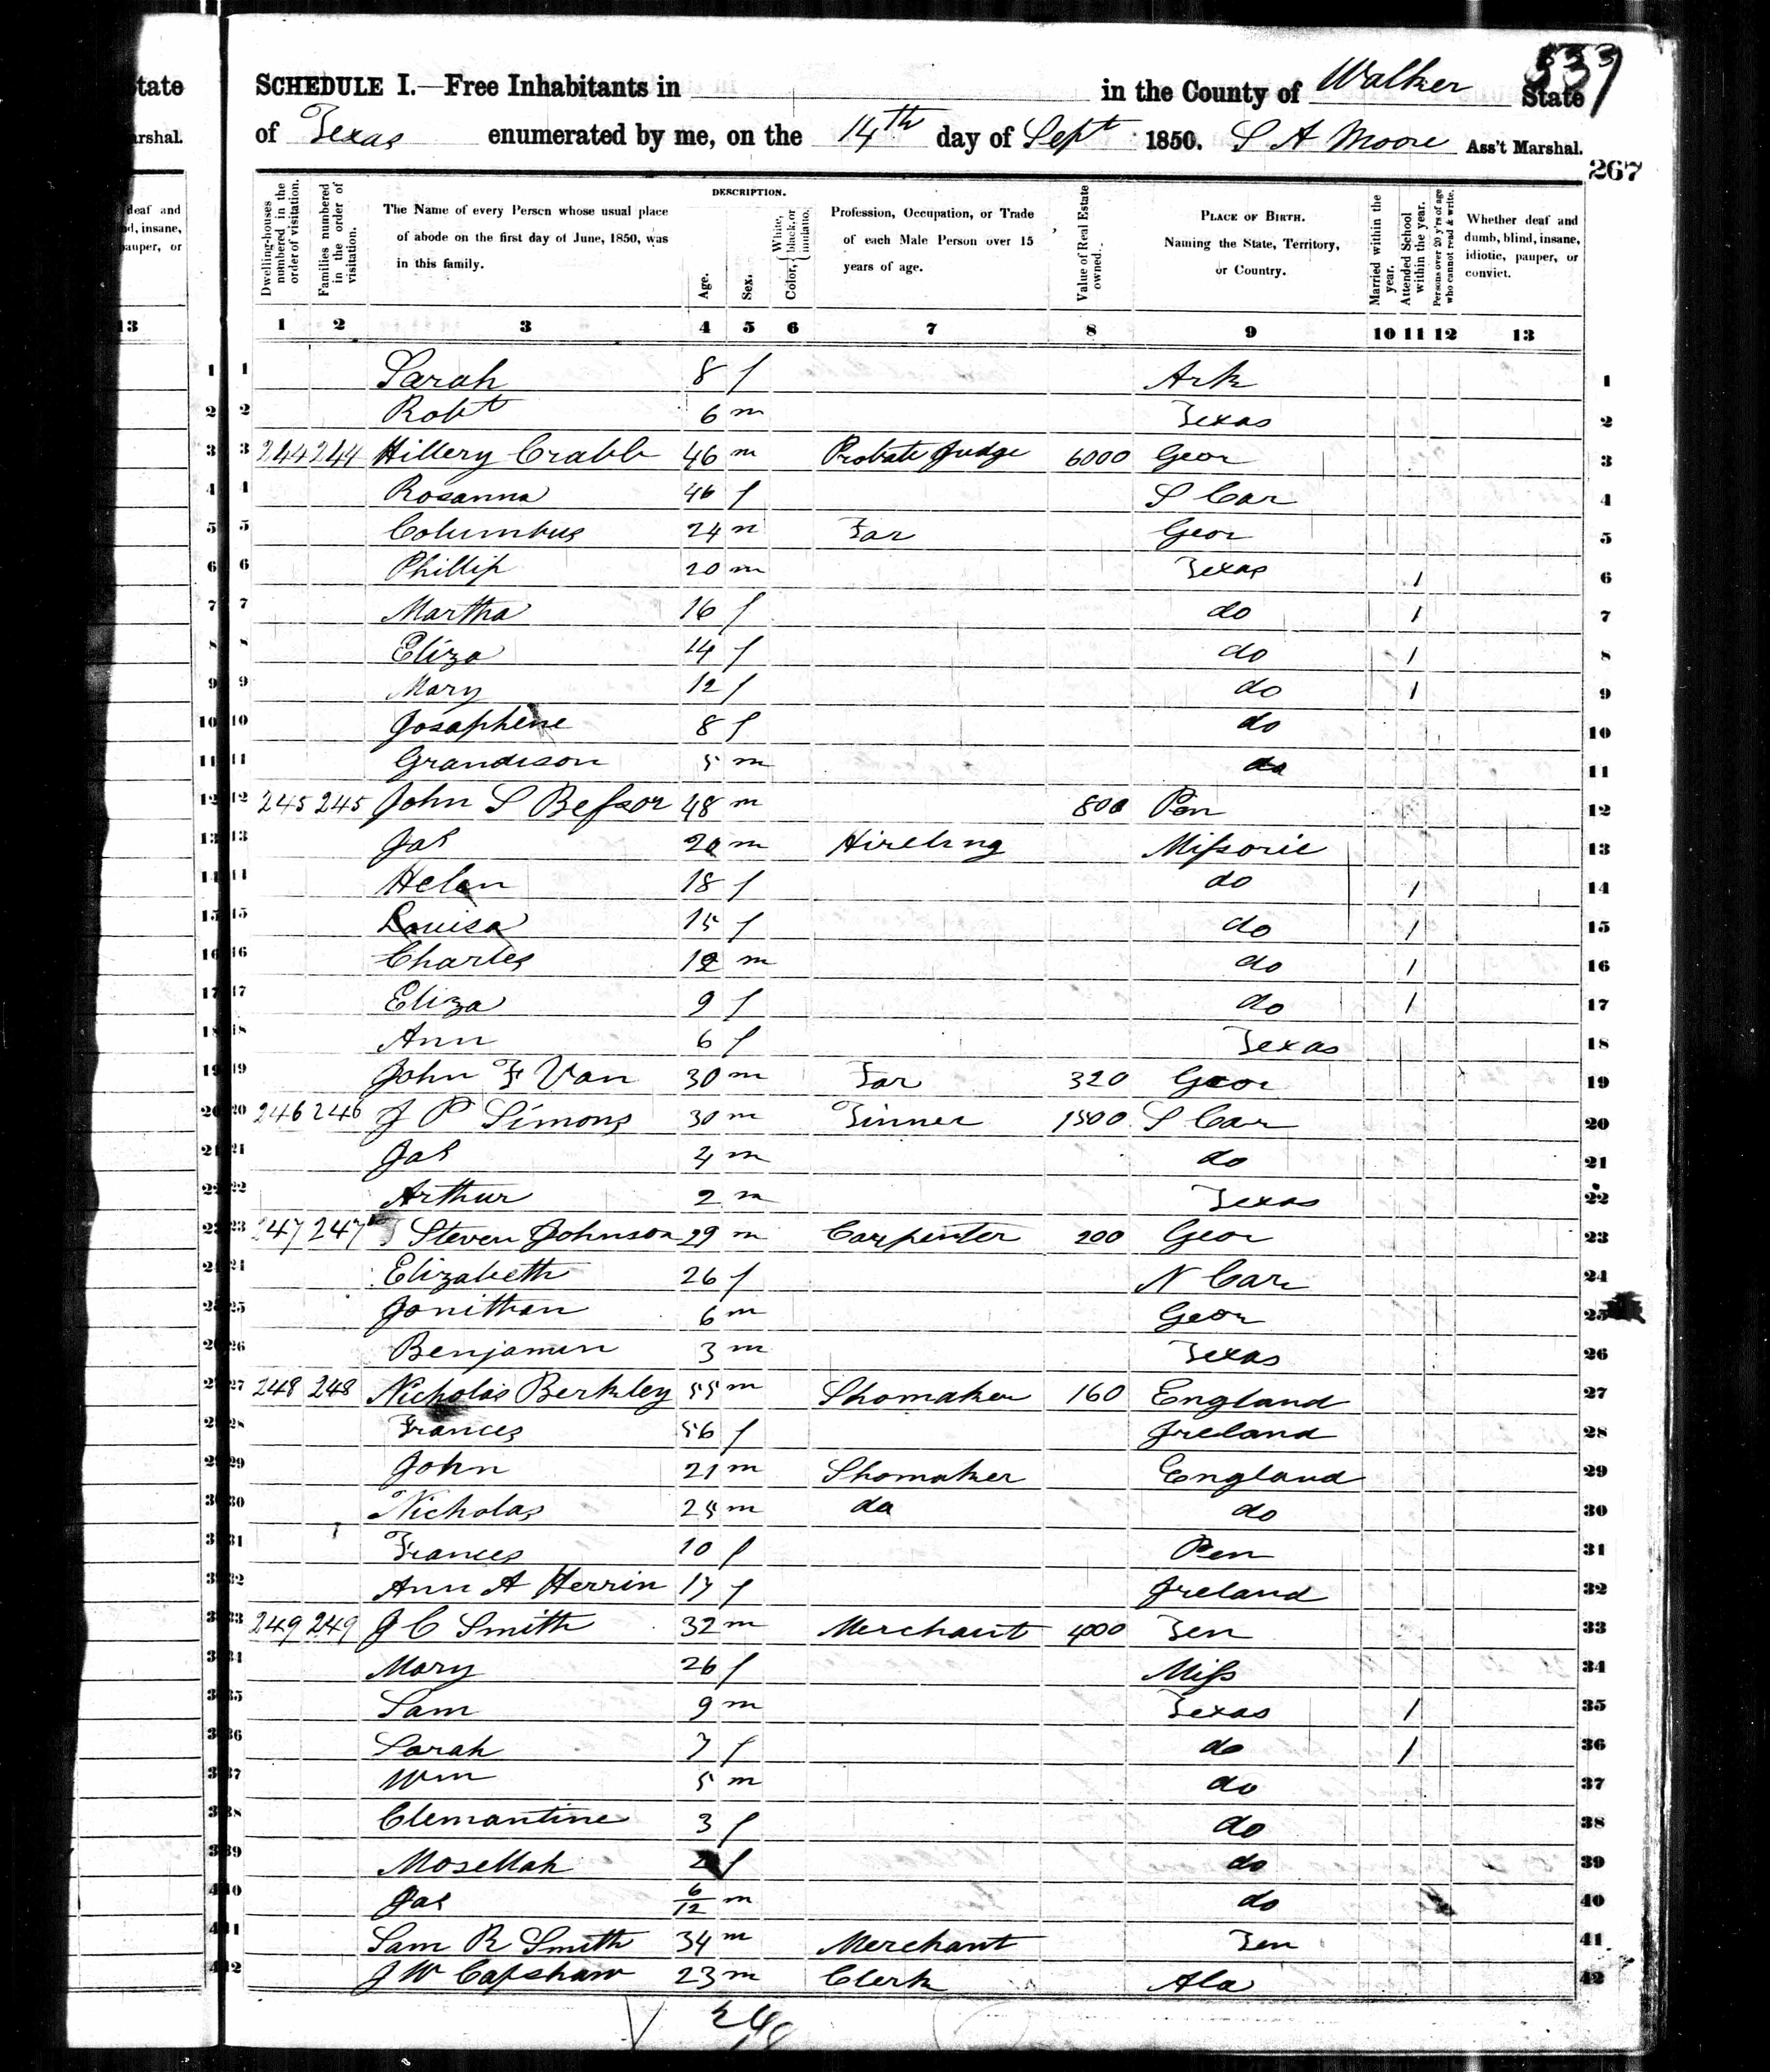 tate
arshal.
deaf and
d, insane,
pauper, or
13
337
SCHEDULE I.—Free Inhabitants in in the County of Walker State
of Texas enumerated by me, on the 14th day of Sept 1850. S A Moore Ass't Marshal.
267
Dwelling-houses numbered in the order of visitation.
Families numbered in the order of visitation.
The Name of every Person whose usual place of abode on the first day of June, 1850, was in this family.
DESCRIPTION.
Age.
Sex.
Color, { White, black, or mulatto.
Profession, Occupation, or Trade of each Male Person over 15 years of age.
Value of Real Estate owned.
PLACE OF BIRTH. Naming the State, Territory, or Country.
Married within the year.
Attended School within the year.
Persons over 20 y'rs of age who cannot read & write.
Whether deaf and dumb, blind, insane, idiotic, pauper, or convict.
1 2 3 4 5 6 7 8 9 10 11 12 13
1 Sarah 8 f Ark 1
2 Robt 6 m Texas 2
3 244 244 Hillery Crabb 46 m Probate Judge 6000 Geor 3
4 Rosanna 46 f S Car 4
5 Columbus 24 m Far Geor 5
6 Phillip 20 m Texas 1 6
7 Martha 16 f do 1 7
8 Eliza 14 f do 1 8
9 Mary 12 f do 1 9
10 Josaphene 8 f do 10
11 Grandison 5 m do 11
12 245 245 John S Bessor 48 m 800 Pen 12
13 Jas 20 m Hireling Missorie 13
14 Helen 18 f do 1 14
15 Louisa 15 f do 1 15
16 Charles 12 m do 1 16
17 Eliza 9 f do 1 17
18 Ann 6 f Texas 18
19 John F Van 30 m Far 320 Geor 19
20 246 246 J P Simons 30 m Tinner 1500 S Car 20
21 Jas 4 m do 21
22 Arthur 2 m Texas 22
23 247 247 Steven Johnson 29 m Carpenter 200 Geor 23
24 Elizabeth 26 f N Car 24
25 Jonithan 6 m Geor 25
26 Benjamin 3 m Texas 26
27 248 248 Nicholas Berkley 55 m Shomaker 160 England 27
28 Frances 56 f Ireland 28
29 John 21 m Shomaker England 29
30 Nicholas 25 m do do 30
31 Frances 10 f Pen 31
32 Ann A Herrin 17 f Ireland 32
33 249 249 J C Smith 32 m Merchant 4000 Ten 33
34 Mary 26 f Miss 34
35 Sam 9 m Texas 1 35
36 Sarah 7 f do 1 36
37 Wm 5 m do 37
38 Clemantine 3 f do 38
39 Mosellah 2 f do 39
40 Jas 6/12 m do 40
41 Sam R Smith 34 m Merchant Ten 41
42 J W Capshaw 23 m Clerk Ala 42